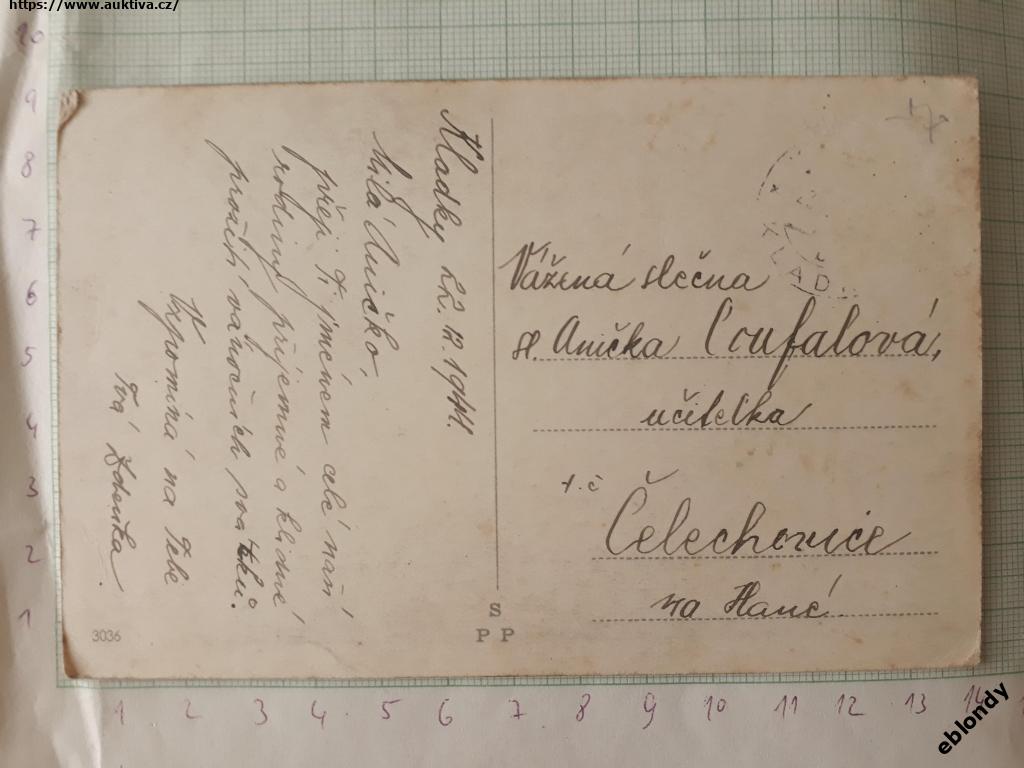 https://www.auktiva.cz/
Hladky 22.12.1941.
Milá Aničko,
přeji Ti jménem celé naší
rodiny příjemné a klidné
prožití vánočních svátků.
Vzpomíná na Tebe
Tvá Zdenka
3036
S
P P
Vážená slečna
sl. Anička Coufalová,
učitelka
t. č
Čelechovice
na Hané
10
9
8
7
6
5
4
3
2
1
1 2 3 4 5 6 7 8 9 10 11 12 13 14
eblondy